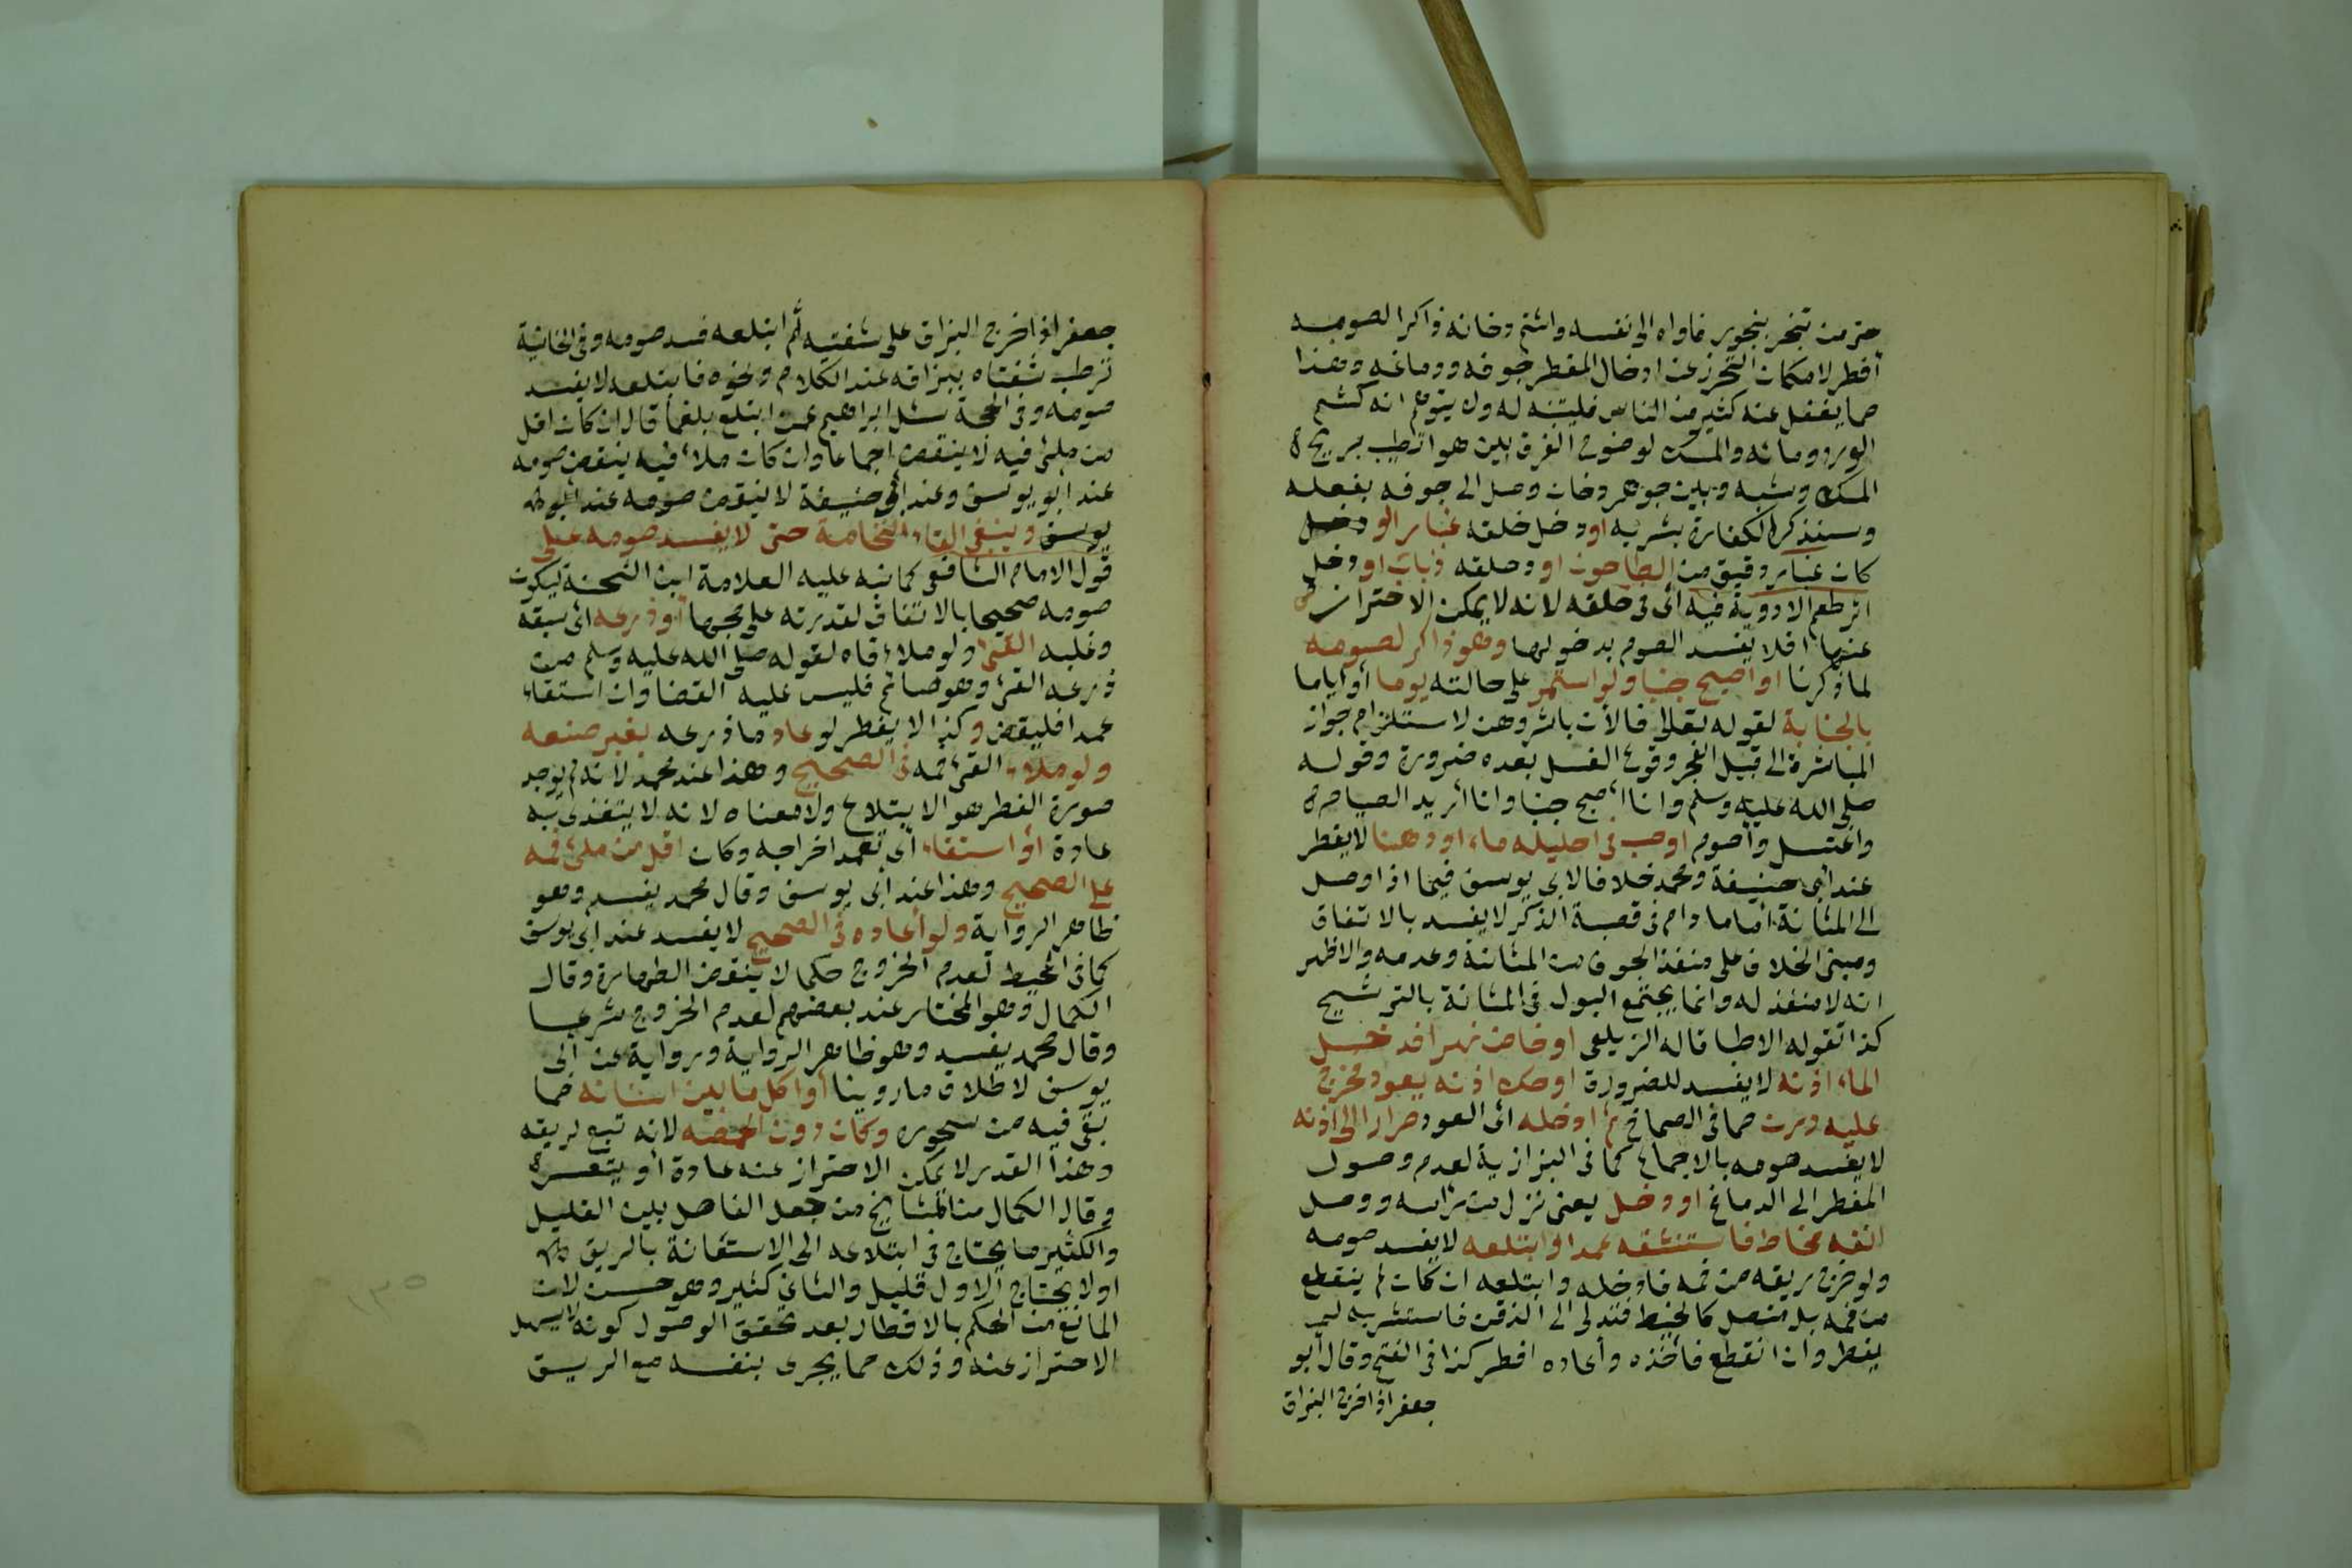 حتى من تبخر ببخور فاواه الى نفسه واشتم دخانه ذاكرا لصومه
أفطر لامكان التحرز عن ادخال المفطر جوفه ودماغه وهذا
مما يغفل عنه كثير من الناس فليتنبه له ولا يتوهم انه كشم
الورد ومائه والمسك لوضوح الفرق بين هواء تطيب بريح
المسك وشبهه وبين جوهر دخان وصل الى جوفه بفعله
وسنذكر الكفارة بشربه او دخل حلقه غبار ولو
كان غبار دقيق من الطاحون او دخل حلقه ذباب او دخل
اثر طعم الادوية فيه أى فى حلقه لانه لا يمكن الاحتراز
عنها فلا يفسد الصوم بدخولها وهو ذاكر لصومه
لما ذكرنا او اصبح جنبا ولو استمر على حالته يوما أو أياما
بالجنابة لقوله تعالى فالآن باشروهن لاستلزام جواز
المباشرة الى قبيل الفجر وقوع الغسل بعده ضرورة وقوله
صلى الله عليه وسلم وانا أصبح جنبا وانا أريد الصيام
واغتسل وأصوم او صب فى احليله ماء او دهنا لا يفطر
عند أبى حنيفة ومحمد خلافا لابى يوسف فيما اذا وصل
الى المثانة اما ما دام فى قصبة الذكر لا يفسد بالاتفاق
ومبنى الخلاف على منفذ الجوف من المثانة وعدمه والاظهر
انه لا منفذ له وانما يجتمع البول فى المثانة بالترشيح
كذا تقوله الاطبا قاله الزيلعى او خاض نهرا فدخل
الماء اذنه لا يفسد للضرورة او حك اذنه بعود فخرج
عليه درن مما فى الصماخ ثم ادخله اى العود مرارا الى اذنه
لا يفسد صومه بالاجماع كما فى البزازية لعدم وصول
المفطر الى الدماغ او دخل يعنى نزل من راسه ووصل
انفه مخاط فاستنشقه عمدا او ابتلعه لا يفسد صومه
ولو خرج ريقه من فمه فادخله وابتلعه ان كان لم ينقطع
من فمه بل متصل كالخيط فتدلى الى الذقن فاستشربه لم
يفطر وان انقطع فاخذه وأعاده افطر كذا فى الفتح وقال أبو
جعفر اذا اخرج البزاق
جعفر اذا اخرج البزاق على شفتيه ثم ابتلعه فسد صومه وفى الخانية
ترطب شفتاه ببزاقه عند الكلام ونحوه فابتلعه لا يفسد
صومه وفى الحجة سئل ابراهيم عمن ابتلع بلغما قال ان كان اقل
من ملئ فيه لا ينقض اجماعا وان كان ملاء فيه ينقض صومه
عند ابو يوسف وعند أبى حنيفة لا ينقض صومه عند
يوسف وينبغى القاء النخامة حتى لا يفسد صومه على
قول الامام الشافعى كما نبه عليه العلامة ابن الشحنة ليكون
صومه صحيحا بالاتفاق لقدرته على مجها أو ذرعه اى سبقه
وغلبه القئ ولو ملاء فاه لقوله صلى الله عليه وسلم من
ذرعه القئ وهو صائم فليس عليه القضا وان استقاء
عمدا فليقض وكذا لا يفطر لو عاد ما ذرعه بغير صنعه
ولو ملاء القئ فمه فى الصحيح وهذا عند محمد لانه لم يوجد
صورة الفطر هو الابتلاع ولا معناه لانه لا يتغذى به
عادة أو استقاء أى تعمد اخراجه وكان اقل من ملئ فمه
على الصحيح وهذا عند أبى يوسف وقال محمد يفسد وهو
ظاهر الرواية ولو أعاده فى الصحيح لا يفسد عند أبى يوسف
كما فى المحيط لعدم الخروج حكما لا ينقض الطهارة وقال
الكمال وهو المختار عند بعضهم لعدم الخروج شرعا
وقال محمد يفسد وهو ظاهر الرواية ورواية عن أبى
يوسف لاطلاق ما روينا أو اكل ما بين اسنانه مما
بقى فيه من سحوره وكان دون الحمصه لانه تبع لريقه
وهذا القدر لا يمكن الاحتراز عنه عادة أو يتعسر
وقال الكمال من المشايخ من جعل الفاصل بين القليل
والكثير ما يحتاج فى ابتلاعه الى الاستعانة بالريق
اولا يحتاج الاول قليل والثانى كثير وهو حسن لان
المانع من الحكم بالافطار بعد تحقق الوصول كونه لا يسهل
الاحتراز عنه وذلك مما يجرى بنفسه مع الريق
١٣٥